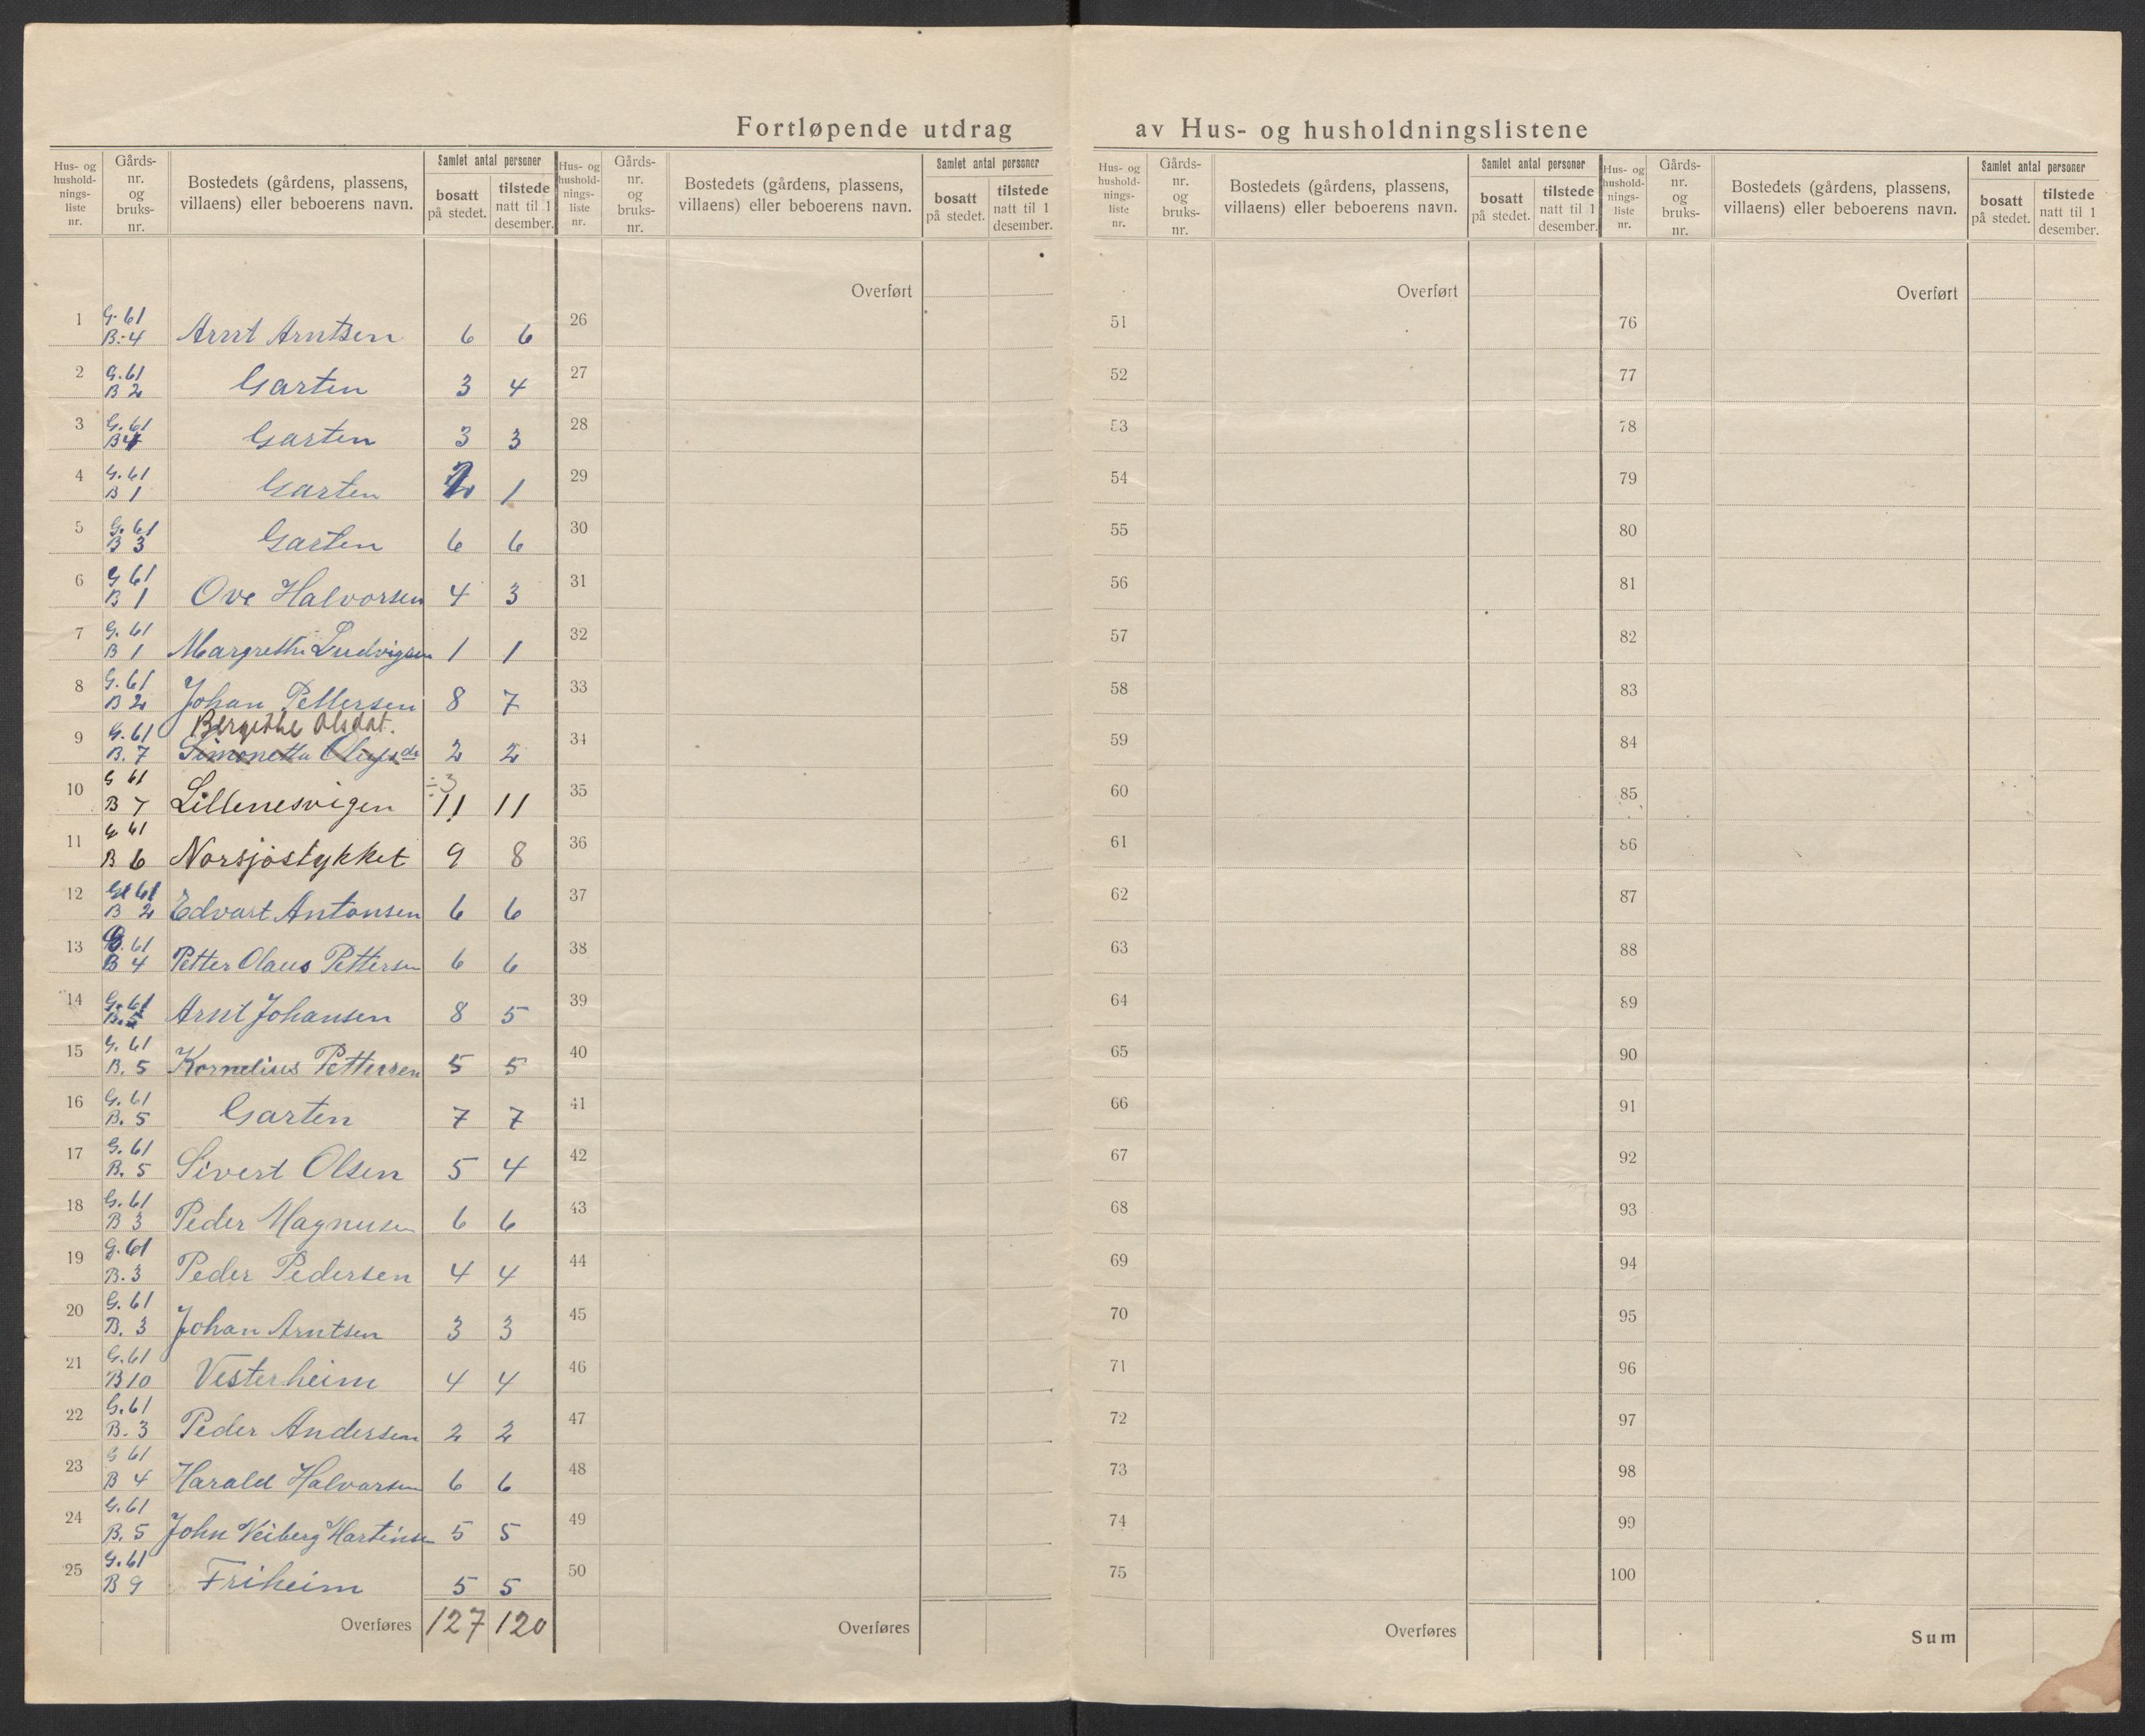 Fortløpende utdrag av Hus- og husholdningslistene
Hus- og hushold-nings-liste nr. Gårds-nr. og bruks-nr. Bostedets (gårdens, plassens, villaens) eller beboerens navn. Samlet antal personer bosatt på stedet. tilstede natt til 1 desember.
Hus- og hushold-nings-liste nr. Gårds-nr. og bruks-nr. Bostedets (gårdens, plassens, villaens) eller beboerens navn. Samlet antal personer bosatt på stedet. tilstede natt til 1 desember.
Hus- og hushold-nings-liste nr. Gårds-nr. og bruks-nr. Bostedets (gårdens, plassens, villaens) eller beboerens navn. Samlet antal personer bosatt på stedet. tilstede natt til 1 desember.
Hus- og hushold-nings-liste nr. Gårds-nr. og bruks-nr. Bostedets (gårdens, plassens, villaens) eller beboerens navn. Samlet antal personer bosatt på stedet. tilstede natt til 1 desember.
Overført Overført Overført
1 G. 61 B. 4 Arnt Arntsen 6 6 26 51 76
2 G. 61 B 2 Garten 3 4 27 52 77
3 G. 61 B 4 Garten 3 3 28 53 78
4 G. 61 B 1 Garten 1 29 54 79
5 G. 61 B 3 Garten 6 6 30 55 80
6 G 61 B 1 Ove Halvorsen 4 3 31 56 81
7 G. 61 B 1 Margrethe Ludvigsen 1 1 32 57 82
8 G. 61 B 2 Johan Pettersen 8 7 33 58 83
Bergithe Olsdat.
9 G. 61 B. 7 Simonetta 2 2 34 59 84
÷3
10 G 61 B 7 Lillenesvigen 11 11 35 60 85
11 G 61 B 6 Norsjøstykket 9 8 36 61 86
12 G 61 B 2 Edvart Antonsen 6 6 37 62 87
13 G. 61 B 4 Petter Olaus Pettersen 6 6 38 63 88
14 G. 61 B. 5 Arnt Johansen 8 5 39 64 89
15 G. 61 B. 5 Kornelius Pettersen 5 5 40 65 90
16 G. 61 B. 5 Garten 7 7 41 66 91
17 G. 61 B. 5 Sivert Olsen 5 4 42 67 92
18 G. 61 B 3 Peder Magnusen 6 6 43 68 93
19 G. 61 B. 3 Peder Pedersen 4 4 44 69 94
20 G. 61 B. 3 Johan Arntsen 3 3 45 70 95
21 G. 61 B 10 Vesterheim 4 4 46 71 96
22 G. 61 B. 3 Peder Andersen 2 2 47 72 97
23 G 61 B 4 Harald Halvorsen 6 6 48 73 98
24 G. 61 B. 5 John Veiberg Martinsen 5 5 49 74 99
25 G. 61 B 9 Friheim 5 5 50 75 100
Overføres 127 120 Overføres Overføres Sum